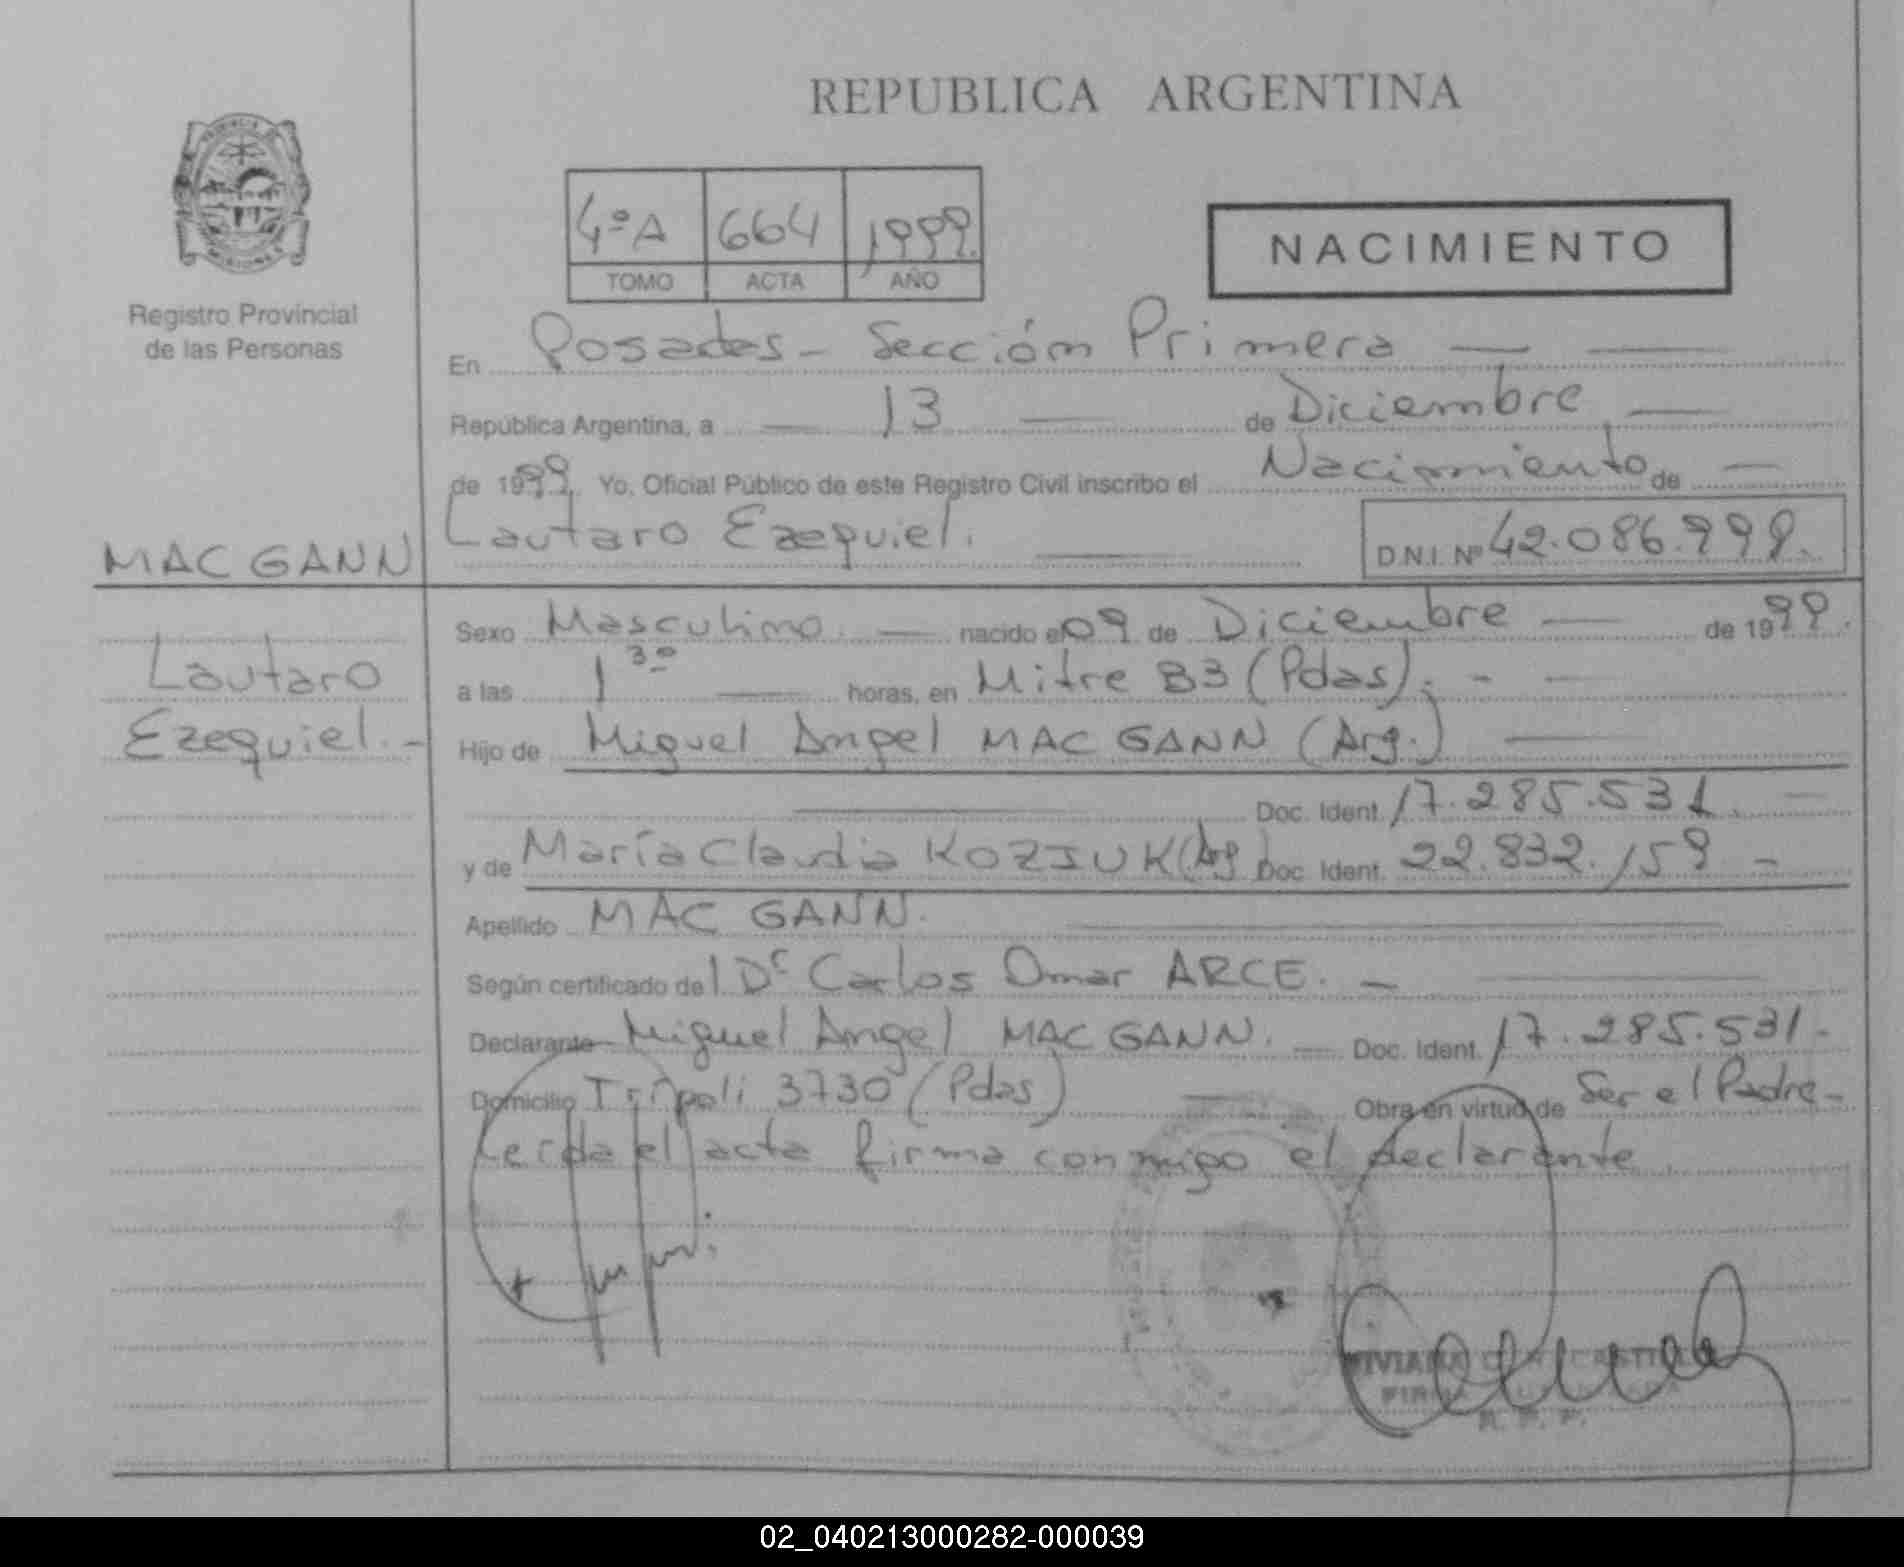 REPUBLICA ARGENTINA
PROVINCIA DE
MISIONES
Registro Provincial
de las Personas
4ºA 664 1999.
TOMO ACTA AÑO
NACIMIENTO
En Posadas - Sección Primera
República Argentina, a 13 de Diciembre
de 1999. Yo, Oficial Público de este Registro Civil inscribo el Nacimiento de
Lautaro Ezequiel.
D.N.I. Nº 42.086.999.
MAC GANN
Lautaro
Ezequiel.-
Sexo Masculino nacido el 09 de Diciembre de 1999.
a las 1 30 horas, en Mitre 83 (Pdas). -
Hijo de Miguel Angel MAC GANN (Arg.)
Doc. Ident. 17.285.531.
y de María Claudia KOZIUK (Arg) Doc. Ident. 22.832.159 -
Apellido MAC GANN.
Según certificado del Dr Carlos Omar ARCE. -
Declarante Miguel Angel MAC GANN. Doc. Ident. 17.285.531-
Domicilio Trípoli 3730 (Pdas) Obra en virtud de Ser el Padre-
Leída el acta firma conmigo el declarante
R. P. P.
02_040213000282-000039